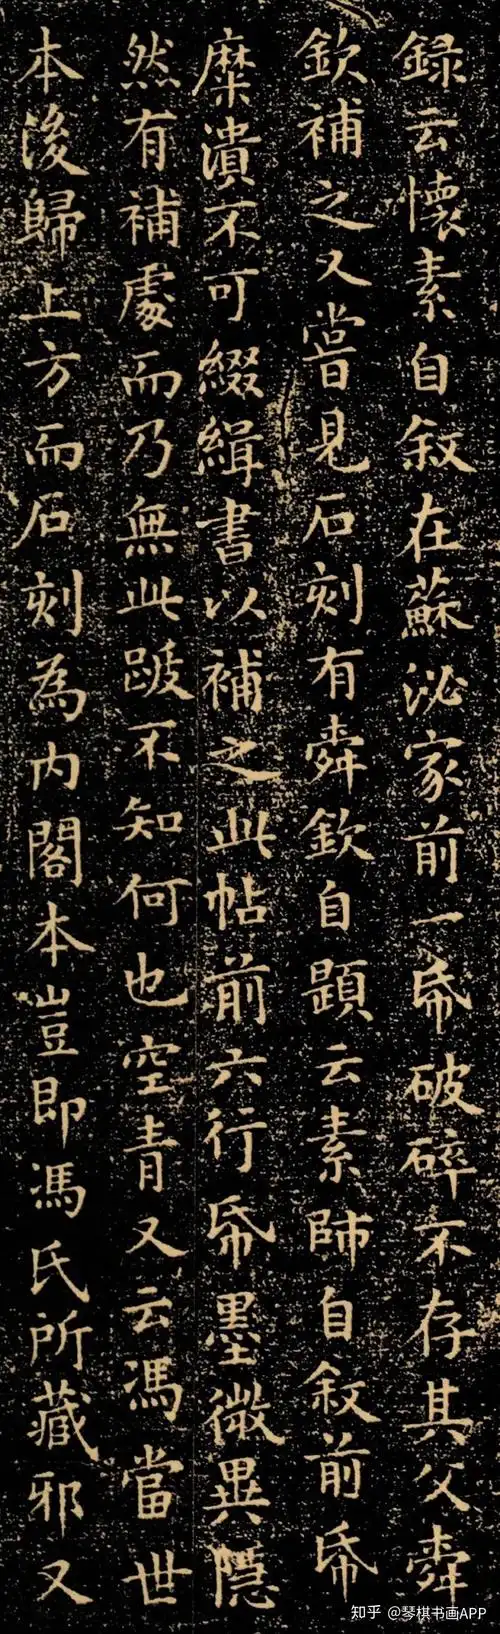 録云懷素自叙在蘇泌家前一帋破碎不存其父舜
欽補之又嘗見石刻有舜欽自題云素師自叙前帋
糜潰不可綴緝書以補之此帖前六行帋墨微異隱
然有補處而乃無此跋不知何也空青又云馮當世
本後歸上方而石刻為内閣本豈即馮氏所藏邪又
知乎 @琴棋书画APP